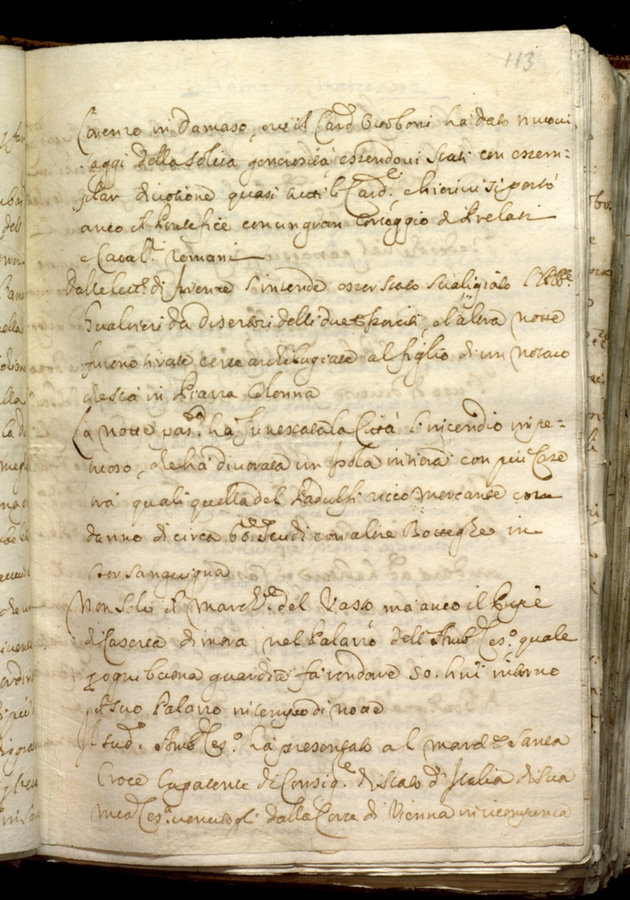 113
Lorenzo in Damaso, ove il Card. Ottoboni ha dato nuovi
saggi della solita generosità essendovi stati con essem-
plar divotione quasi tutti li Card.i e hieri vi si portò
anco il Pontefice con un gran Corteggio di Prelati
e Caval.ri Romani
Dalle lett.e di Firenze s'intende esser stato svaligiato l'Abb.e
Gualtieri da disertori delli due eserciti, e l'altra notte
furono tirate certe archibugiate al figlio di un notaro
in Piazza Colonna
La notte pas.ta ha funestata la Città l'incendio impe-
tuoso, che ha divorata un Isola intiera con più Case
trà quali quella del Pandulfi ricco mercante con
danno di circa scudi con altre Botteghe in
Tor sanguigna
Non solo il March.e del Vasto ma anco il Prñpe
di Caserta dimora nel Palazzo dell'Amb.r Ces.o quale
p ogni buona guardia fà rondare 50. huñi intorno
il suo Palazzo in tempo di notte
Il sud.o Amb.r Ces.o ha presentato al March.e Santa
Croce la patente di Consig.e di stato d'Italia di Sua
Mtà Ces.a venutogli dalla Corte di Vienna in ricompensa